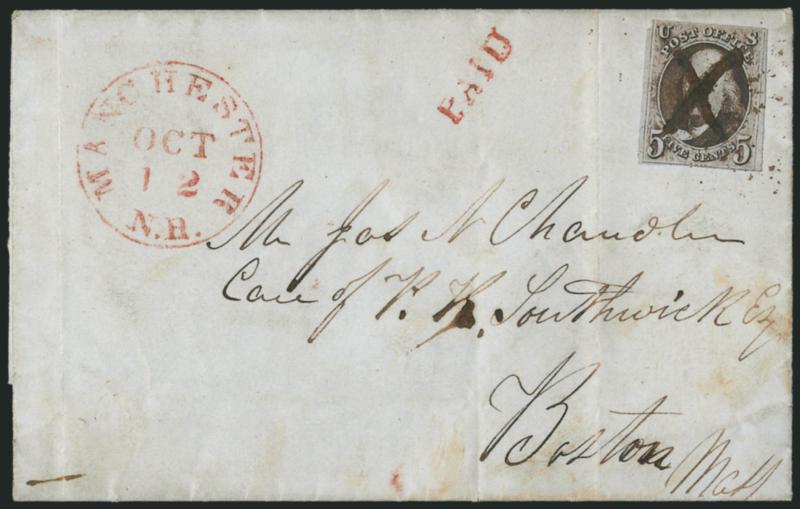 MANCHESTER
OCT
12
N.H.
PAID
U S
POST OFFICE
5 FIVE CENTS 5
Mr Jas N Chandler
Care of P. K. Southwick Esq
Boston Mass